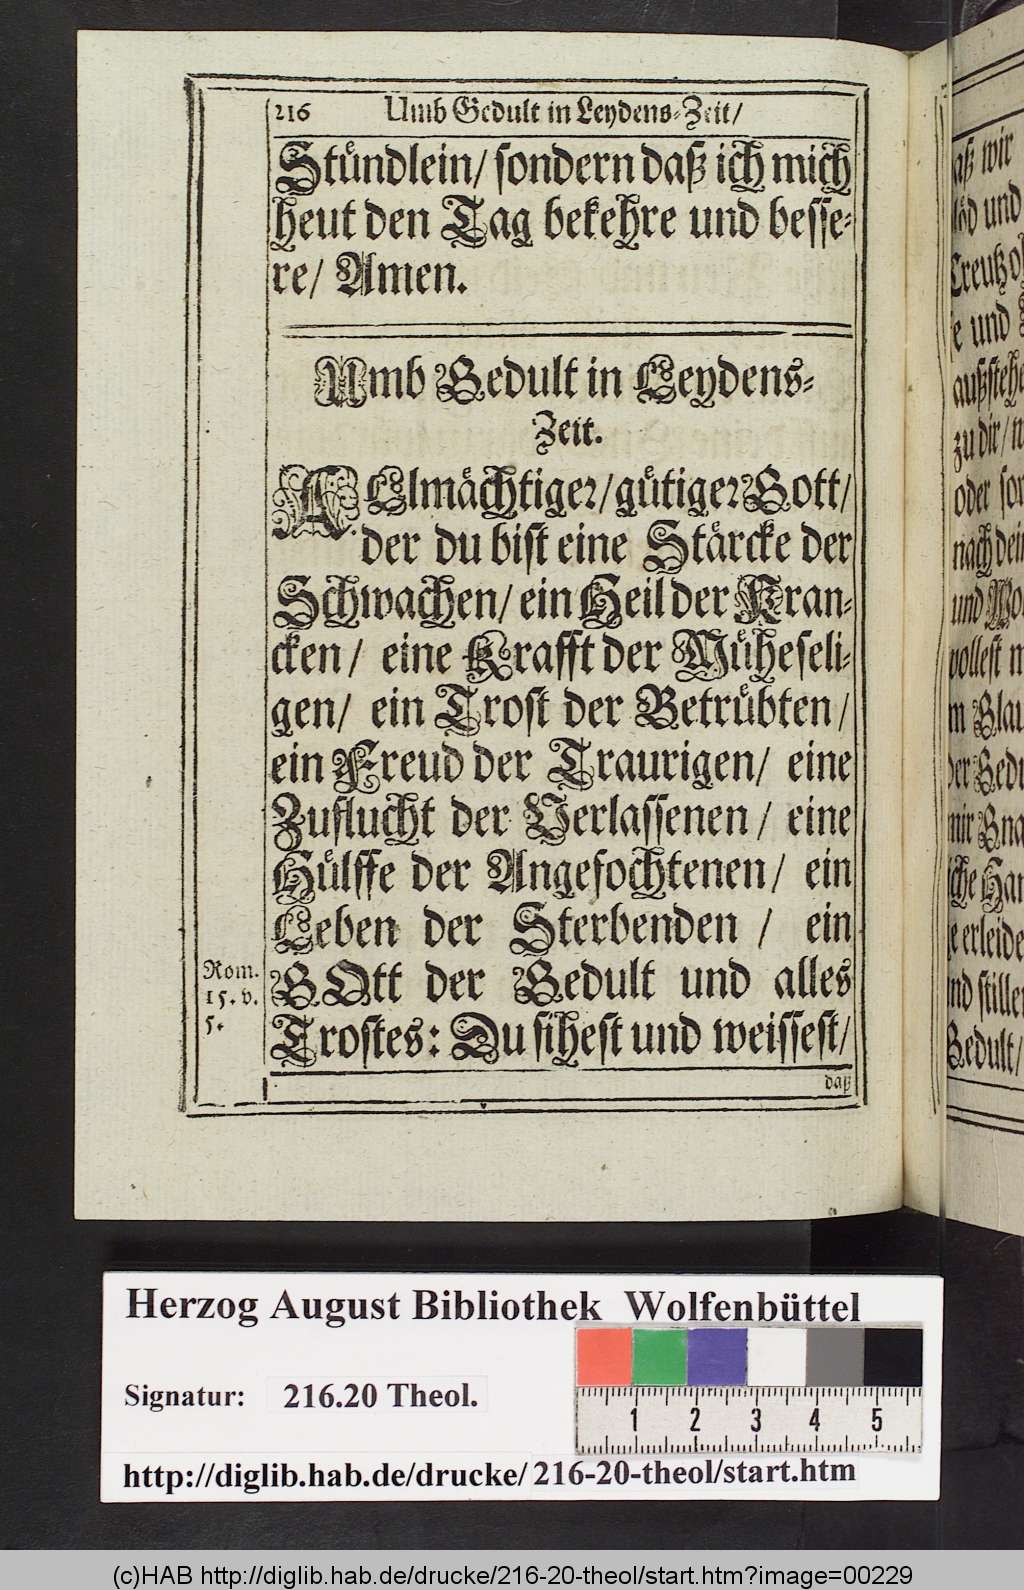 216 Umb Gedult in Leydens-Zeit/
Stündlein/ sondern daß ich mich
heut den Tag bekehre und besse-
re/ Amen.
Umb Gedult in Leydens-
Zeit.
ALlmächtiger/ gütiger Gott/
der du bist eine Stärcke der
Schwachen/ ein Heil der Kran-
cken/ eine Krafft der Müheseli-
gen/ ein Trost der Betrübten/
ein Freud der Traurigen/ eine
Zuflucht der Verlassenen/ eine
Hülffe der Angefochtenen/ ein
Leben der Sterbenden/ ein
GOtt der Gedult und alles
Trostes: Du sihest und weissest/
daß
Rom.
15. v.
5.
aß wir
und
Creutz
e und
außstehe
zu dir/
oder
nach
und
wollest
m
der
mir
erleide
Gedult/
Herzog August Bibliothek Wolfenbüttel
Signatur: 216.20 Theol.
1 2 3 4 5
http://diglib.hab.de/drucke/216-20-theol/start.htm
(c)HAB http://diglib.hab.de/drucke/216-20-theol/start.htm?image=00229